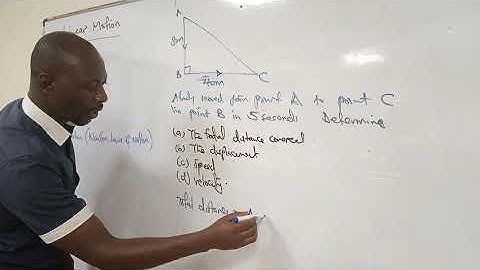 Linear Motion
A
B
C
A body moved from point A to point C
via point B in 5 seconds Determine
(a) The total distance covered
(b) The displacement
(c) Speed
(d) velocity.
(Newton laws of motion)
Total distance